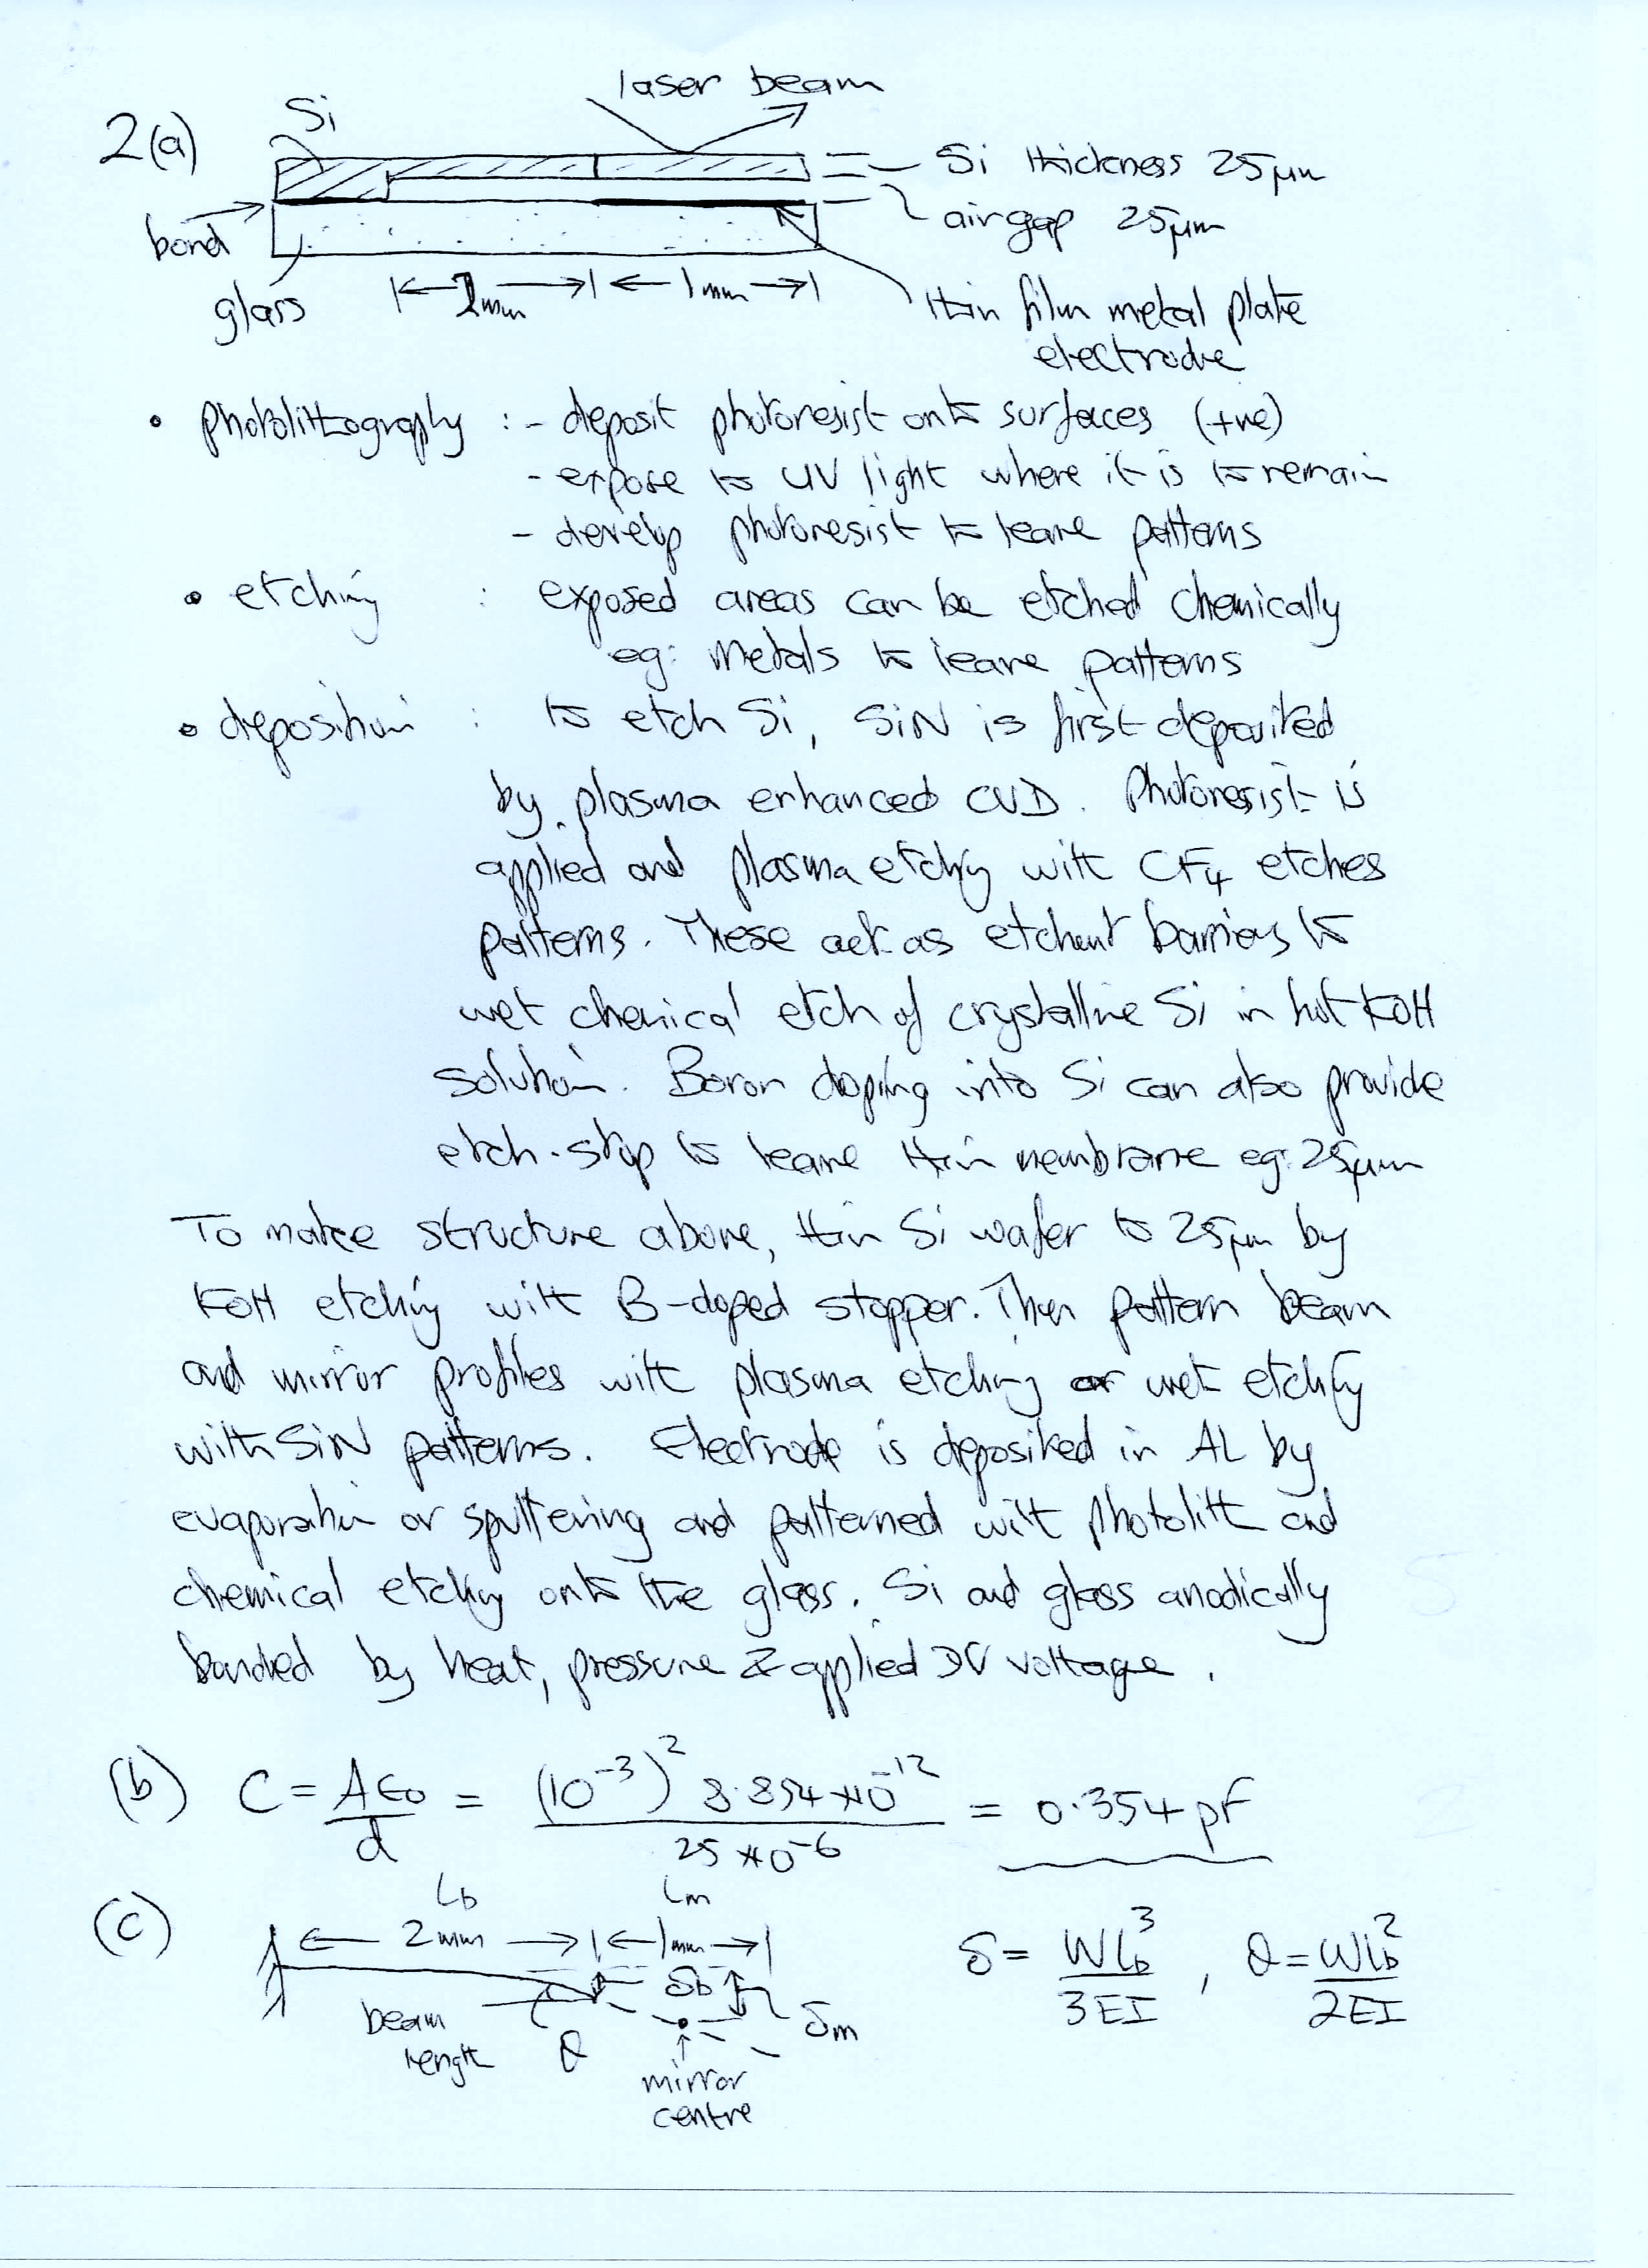 laser beam
Si
2(a)
Si thickness 25μm
air gap 25μm
bond
glass
2mm
1mm
thin film metal plate
electrode
• photolithography : - deposit photoresist onto surfaces (+ve)
- expose to UV light where it is to remain
- develop photoresist to leave patterns
• etching : exposed areas can be etched chemically
eg: metals to leave patterns
• deposition : to etch Si, SiN is first deposited
by plasma enhanced CVD. Photoresist is
applied and plasma etching with CF4 etches
patterns. These act as etchant barriers to
wet chemical etch of crystalline Si in hot KOH
solution. Boron doping into Si can also provide
etch-stop to leave thin membrane eg: 25μm
To make structure above, thin Si wafer to 25μm by
KOH etching with B-doped stopper. Then pattern beam
and mirror profiles with plasma etching or wet etching
with SiN patterns. Electrode is deposited in AL by
evaporation or sputtering and patterned with photolith and
chemical etching onto the glass. Si and glass anodically
bonded by heat, pressure & applied DC voltage.
(b) C = Aε0/d = (10^-3)^2 8.854×10^-12 / 25×10^-6 = 0.354 pF
(c)
Lb
Lm
2mm
1mm
δ = WLb^3/3EI , θ = WLb^2/2EI
δb
beam
length
θ
δm
mirror
centre